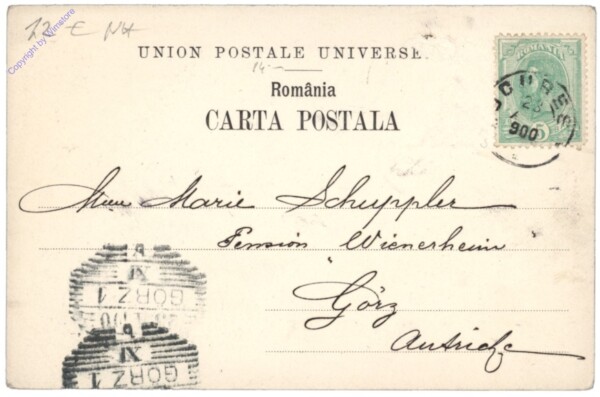 22 € NH
Copyright by Wimstore
UNION POSTALE UNIVERSE
14.-
România
CARTA POSTALA
ROMANIA
5
BUCURES
23
900
Mme Marie Scheyppler
Pension Wienerheim
Görz
Autriche
6
XI
GÖRZ 1
6
XI
GÖRZ 1